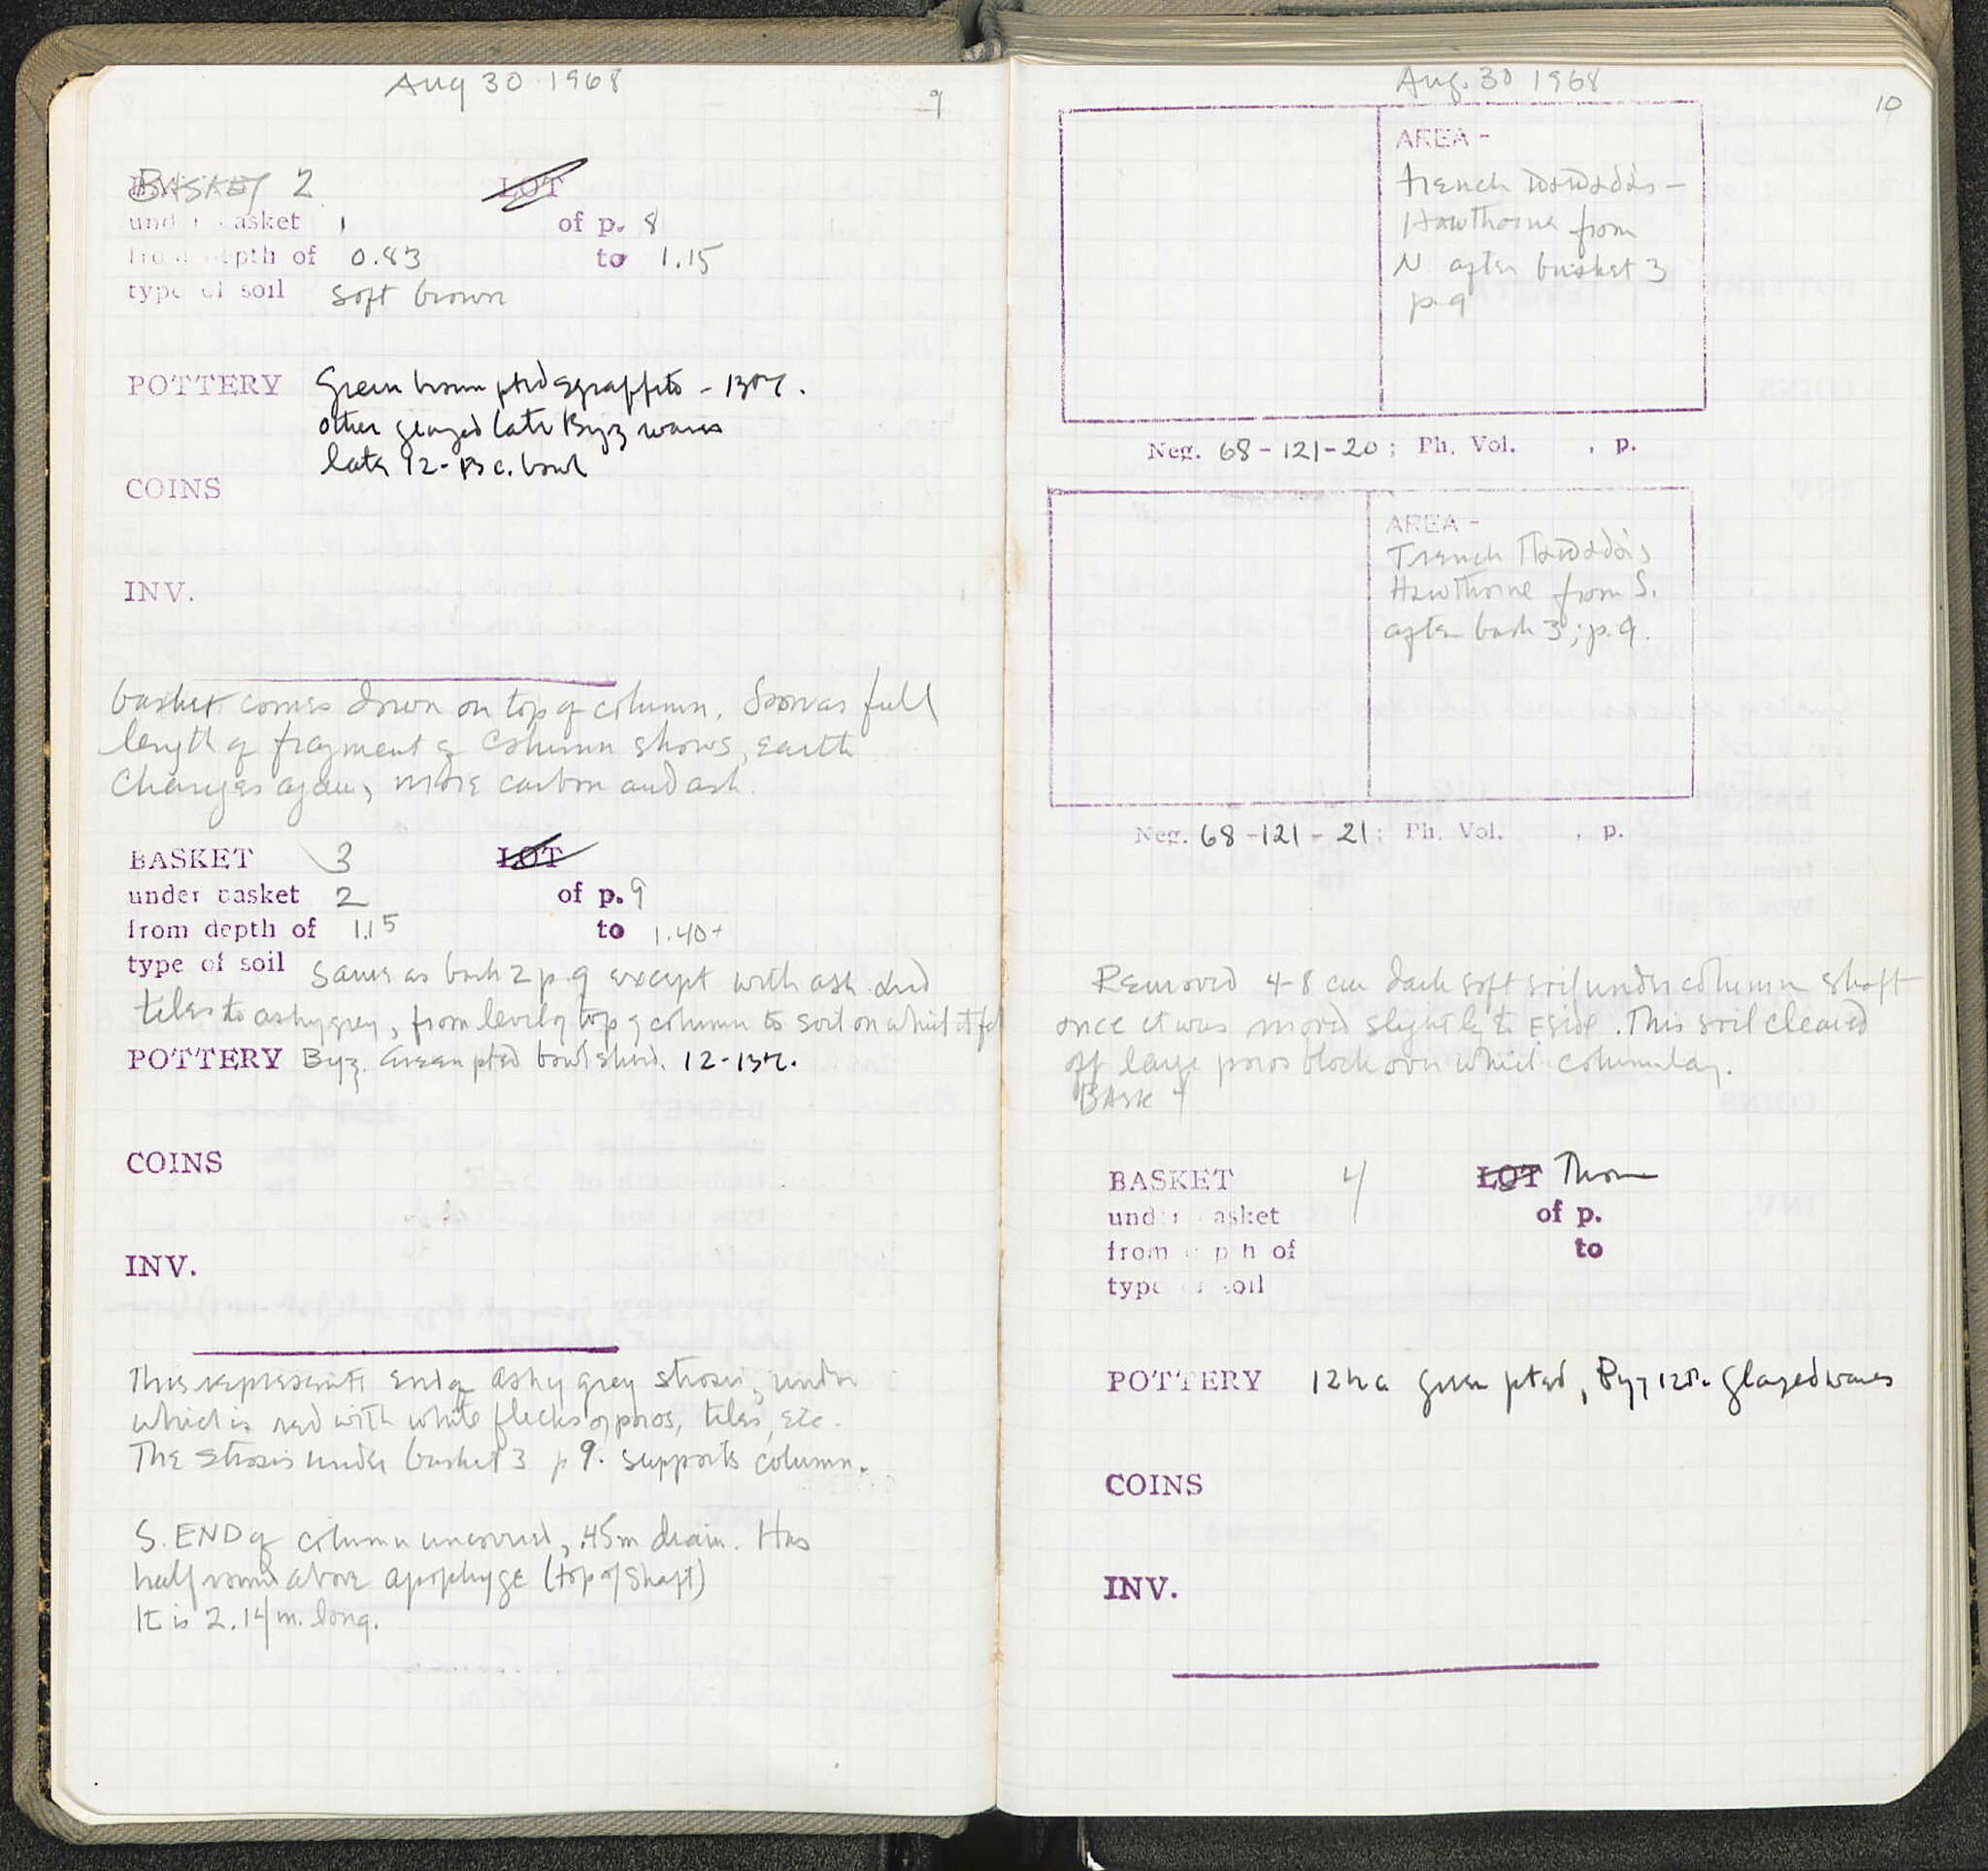 Aug 30 1968
9
BASKET 2 LOT
under basket 1 of p. 8
from depth of 0.83 to 1.15
type of soil soft brown
POTTERY Green brown pted sgraffito - 13th c.
other glazed late Byz wares
late 12-13 c. bowl
COINS
INV.
basket comes down on top of column. Soon as full
length of fragment of column shows, earth
changes again, more carbon and ash.
BASKET 3 LOT
under basket 2 of p. 9
from depth of 1.15 to 1.40+
type of soil same as bask 2 p. 9 except with ash and
tiles to ashy grey, from level of top of column to soil on which it fell
POTTERY Byz. Green pted bowl sherd. 12-13th c.
COINS
INV.
This represents end of ashy grey strosis, under
which is red with white flecks of poros, tiles, etc.
The strosis under basket 3 p 9. supports column.
S. END of column uncovered, .45m diam. Has
half round above apophyge (top of shaft)
It is 2.14 m. long.
Aug. 30 1968
10
AREA -
trench
Hawthorne from
N after basket 3
p. 9
Neg. 68-121-20; Ph. Vol. , p.
AREA -
Trench
Hawthorne from S.
after bask 3; p. 9.
Neg. 68-121-21; Ph. Vol. , p.
Removed 4-8 cm dark soft soil under column shaft
once it was moved slightly to E side. This soil cleaned
off large poros block over which column lay.
Bask 4
BASKET 4 LOT Thrown
under basket of p.
from depth of to
type of soil
POTTERY 12th c green pted, Byz 12th c glazed wares
COINS
INV.